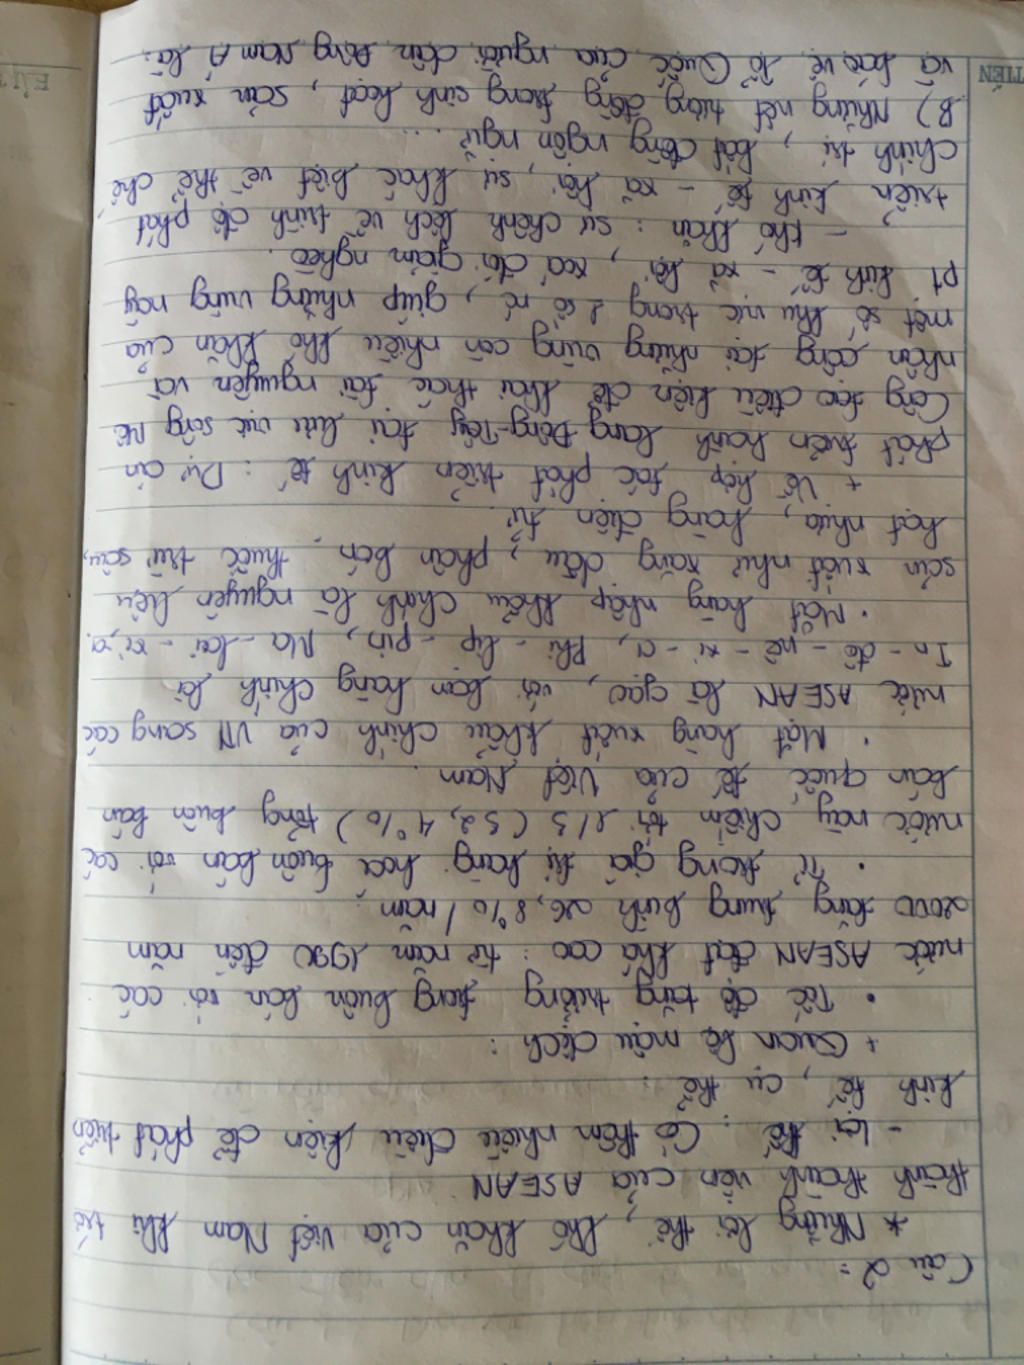 Câu 2:
* Những lợi thế, khó khăn của Việt Nam khi trở
thành thành viên của ASEAN
- Lợi thế: Có thêm nhiều điều kiện để phát triển
kinh tế, cụ thể:
+ Quan hệ mậu dịch:
• Tốc độ tăng trưởng trong buôn bán với các
nước ASEAN đạt khá cao: từ năm 1990 đến năm
2000 tăng trung bình 26,8%/năm.
• Tỉ trọng giá trị hàng hoá buôn bán với các
nước này chiếm tới 1/3 (32,4%) tổng buôn bán
bán quốc tế của Việt Nam.
• Mặt hàng xuất khẩu chính của VN sang các
nước ASEAN là gạo, với bạn hàng chính là
In-đô-nê-xi-a, Phi-lip-pin, Ma-lai-xi,a.
• Mặt hàng nhập khẩu chính là nguyên liệu
sản xuất như xăng dầu, phân bón, thuốc trừ sâu,
hạt nhựa, hàng điện tử.
+ Về hợp tác phát triển kinh tế: Dự án
phát triển hành lang Đông-Tây tại lưu vực sông Mê
Công tạo điều kiện để khai thác tài nguyên và
nhân công tại những vùng còn nhiều khó khăn của
một số khu vực trong nước ta, giúp những vùng này
pt kinh tế - xã hội, xoá đói giảm nghèo.
- Khó khăn: sự chênh lệch về trình độ phát
triển kinh tế - xã hội, sự khác biệt về thể chế
chính trị, bất đồng ngôn ngữ ...
B) Những nét tương đồng trong sinh hoạt, sản xuất
và bảo vệ tổ Quốc của người dân Đông Nam Á là:
TIÊN